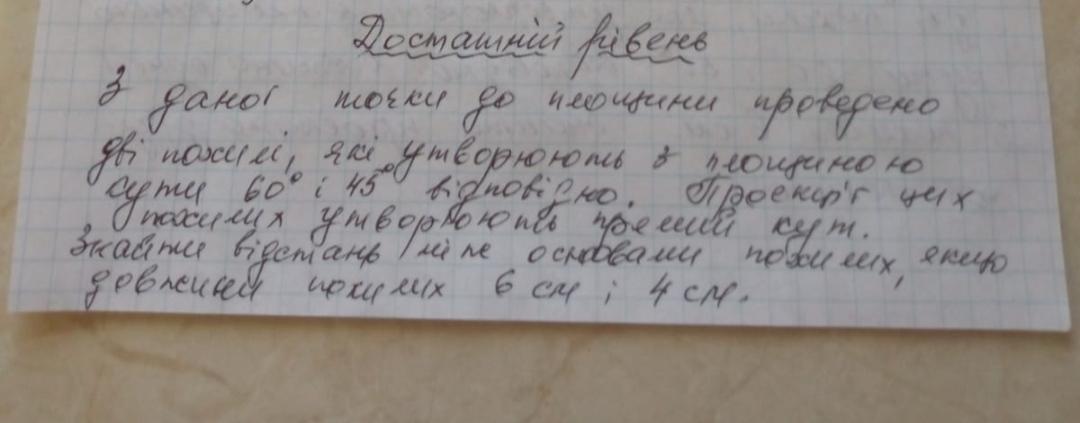 Достатній рівень
З даної точки до площини проведено
дві похилі, які утворюють з площиною
кути 60° і 45° відповідно. Проекції цих
похилих утворюють прямий кут.
Знайти відстань між основами похилих, якщо
довжини похилих 6 см і 4 см.